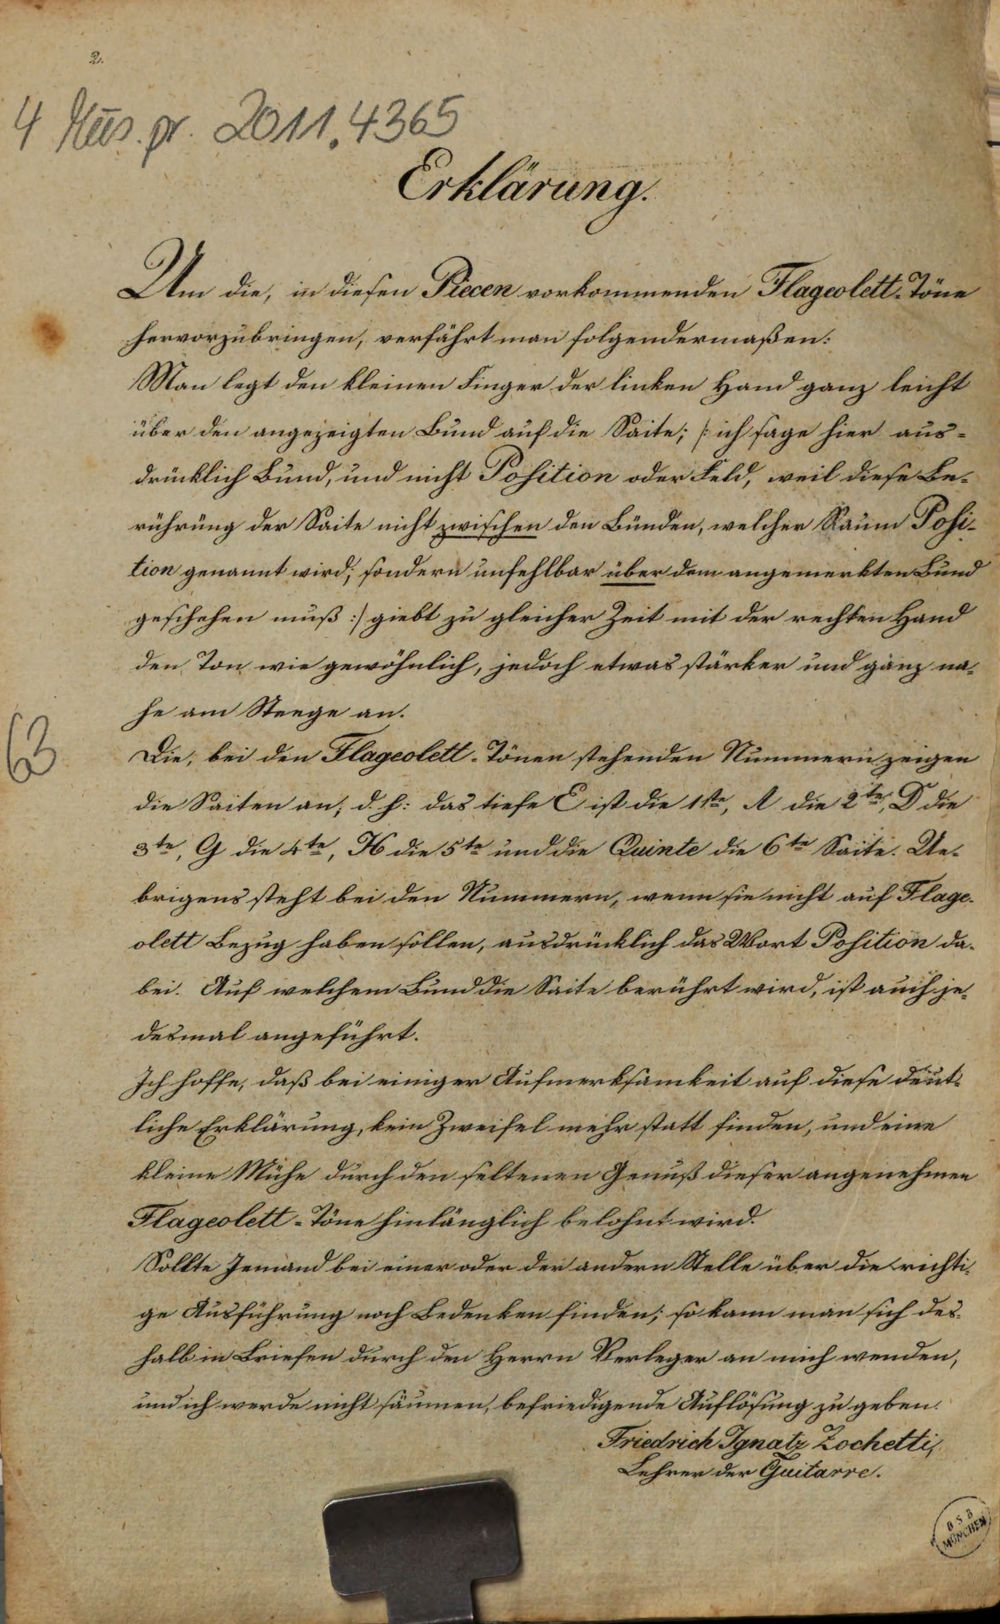 2.
4 Mus. pr. 2011.4365
Erklärung.
Um die, in diesen Piecen vorkommenden Flageolett-Töne
hervorzubringen, verfährt man folgendermaßen:
Man legt den kleinen Finger der linken Hand ganz leicht
über den angezeigten Bund auf die Saite; /: ich sage hier aus-
drücklich Bund, und nicht Position oder Feld, weil diese Be-
rührung der Saite nicht zwischen den Bünden, welcher Raum Posi-
tion genannt wird; sondern unfehlbar über dem angemerkten Bund
geschehen muß :/ giebt zu gleicher Zeit mit der rechten Hand
den Ton wie gewöhnlich, jedoch etwas stärker und ganz na-
he am Steege an.
Die, bei den Flageolett-Tönen stehenden Nummern zeigen
die Saiten an; d. h: das tiefe E ist die 1ste, A die 2te, D die
3te, G die 4te, H die 5te und die Quinte die 6te Saite. Ue-
brigens steht bei den Nummern, wenn sie nicht auf Flage-
olett Bezug haben sollen, ausdrücklich das Wort Position da-
bei. Auf welchem Bund die Saite berührt wird, ist auch je-
desmal angeführt.
Ich hoffe, daß bei einiger Aufmerksamkeit auf diese deut-
liche Erklärung, kein Zweifel mehr statt finden, und eine
kleine Mühe durch den seltenen Genuß dieser angenehmen
Flageolett-Töne hinlänglich belohnt wird.
Sollte Jemand bei einer oder der andern Stelle über die richti-
ge Ausführung noch Bedenken finden; so kann man sich des-
halb in Briefen durch den Herrn Verleger an mich wenden,
und ich werde nicht säumen, befriedigende Auflösung zu geben.
Friedrich Ignatz Zochetti,
Lehrer der Guitarre.
63
B S B
MÜNCHEN